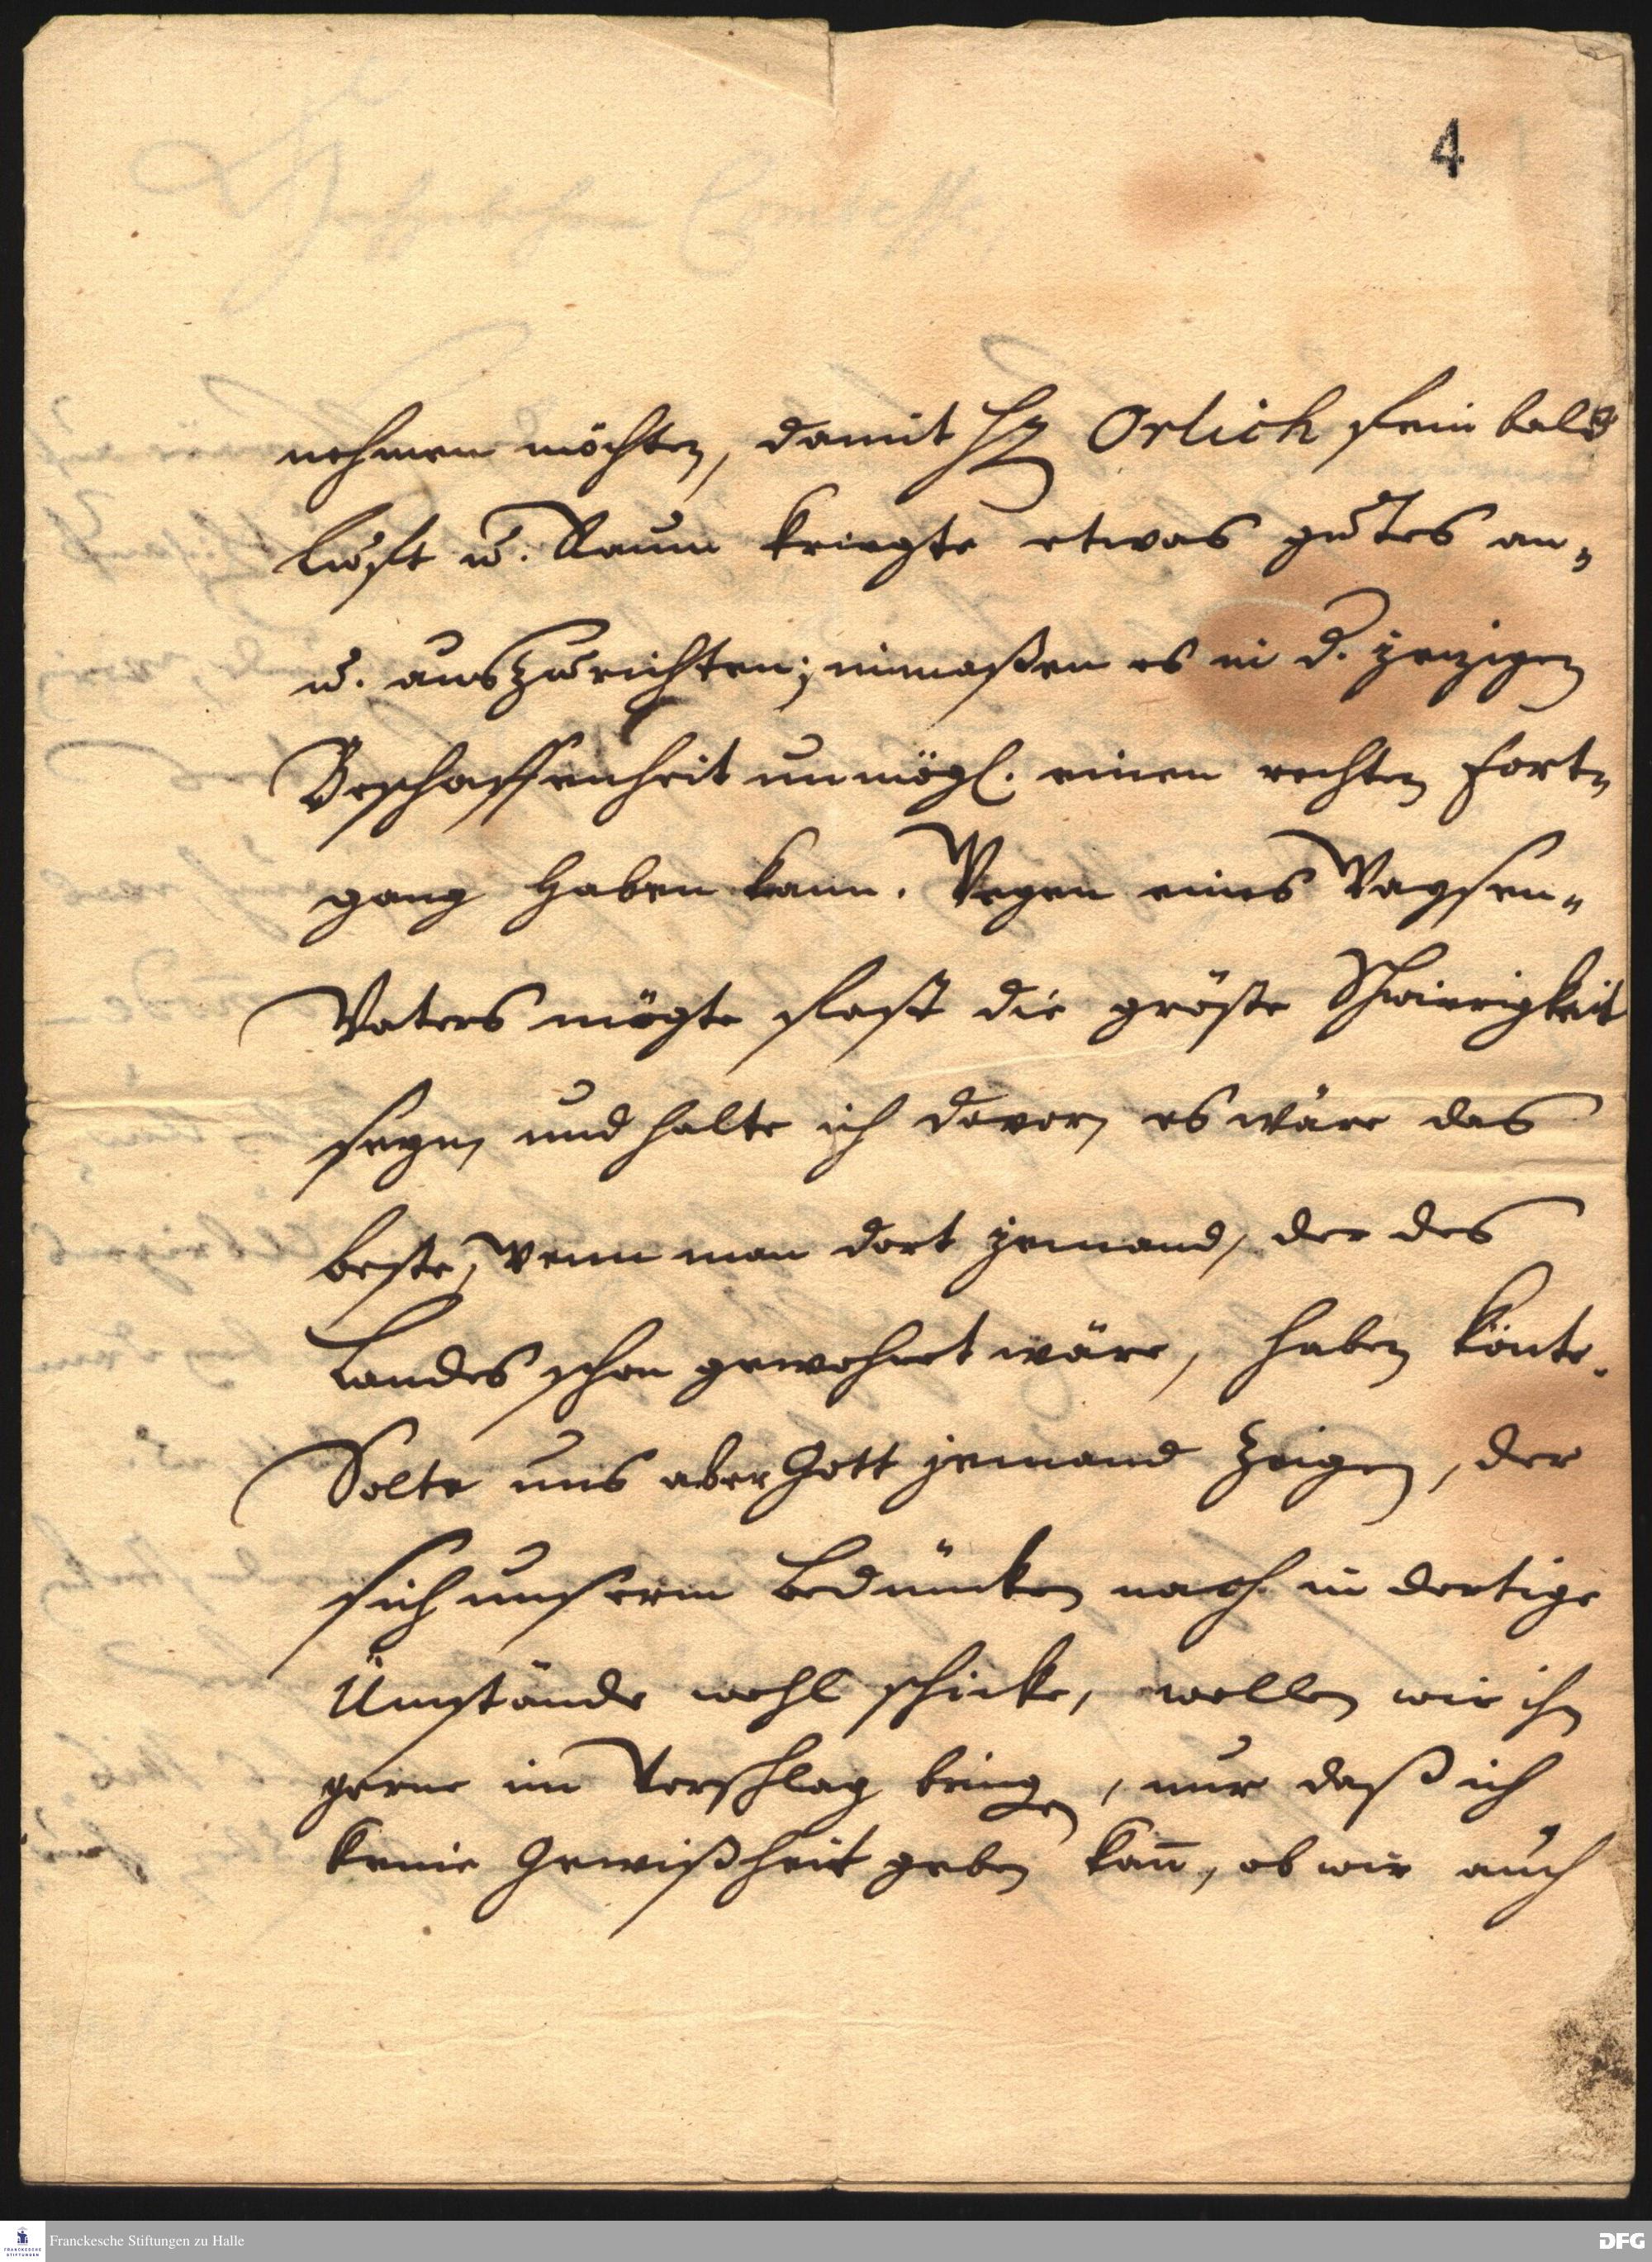 4
nehmen möchten, damit H. Orlich fein bald
Lufft u. Raum kriegte etwas gutes an-
u. auszurichten; immaßen es in d. jezigen
Beschaffenheit unmögl. einen rechten Fort-
gang haben kann. Wegen eines Waysen-
Vaters mögte fast die gröste Schwierigkeit
seyn, und halte ich davor, es wäre das
beste, wenn man dort jemand, der des
Landes schon gewohnet wäre, haben könte.
Solte uns aber Gott jemand zeigen, der
sich unserm Bedüncken nach in dortige
Umstände wohl schicke, wollen wir ihn
gerne im Vorschlag bringen, nur daß ich
keine Gewißheit geben kan̄, ob wir auch
Franckesche Stiftungen zu Halle
DFG